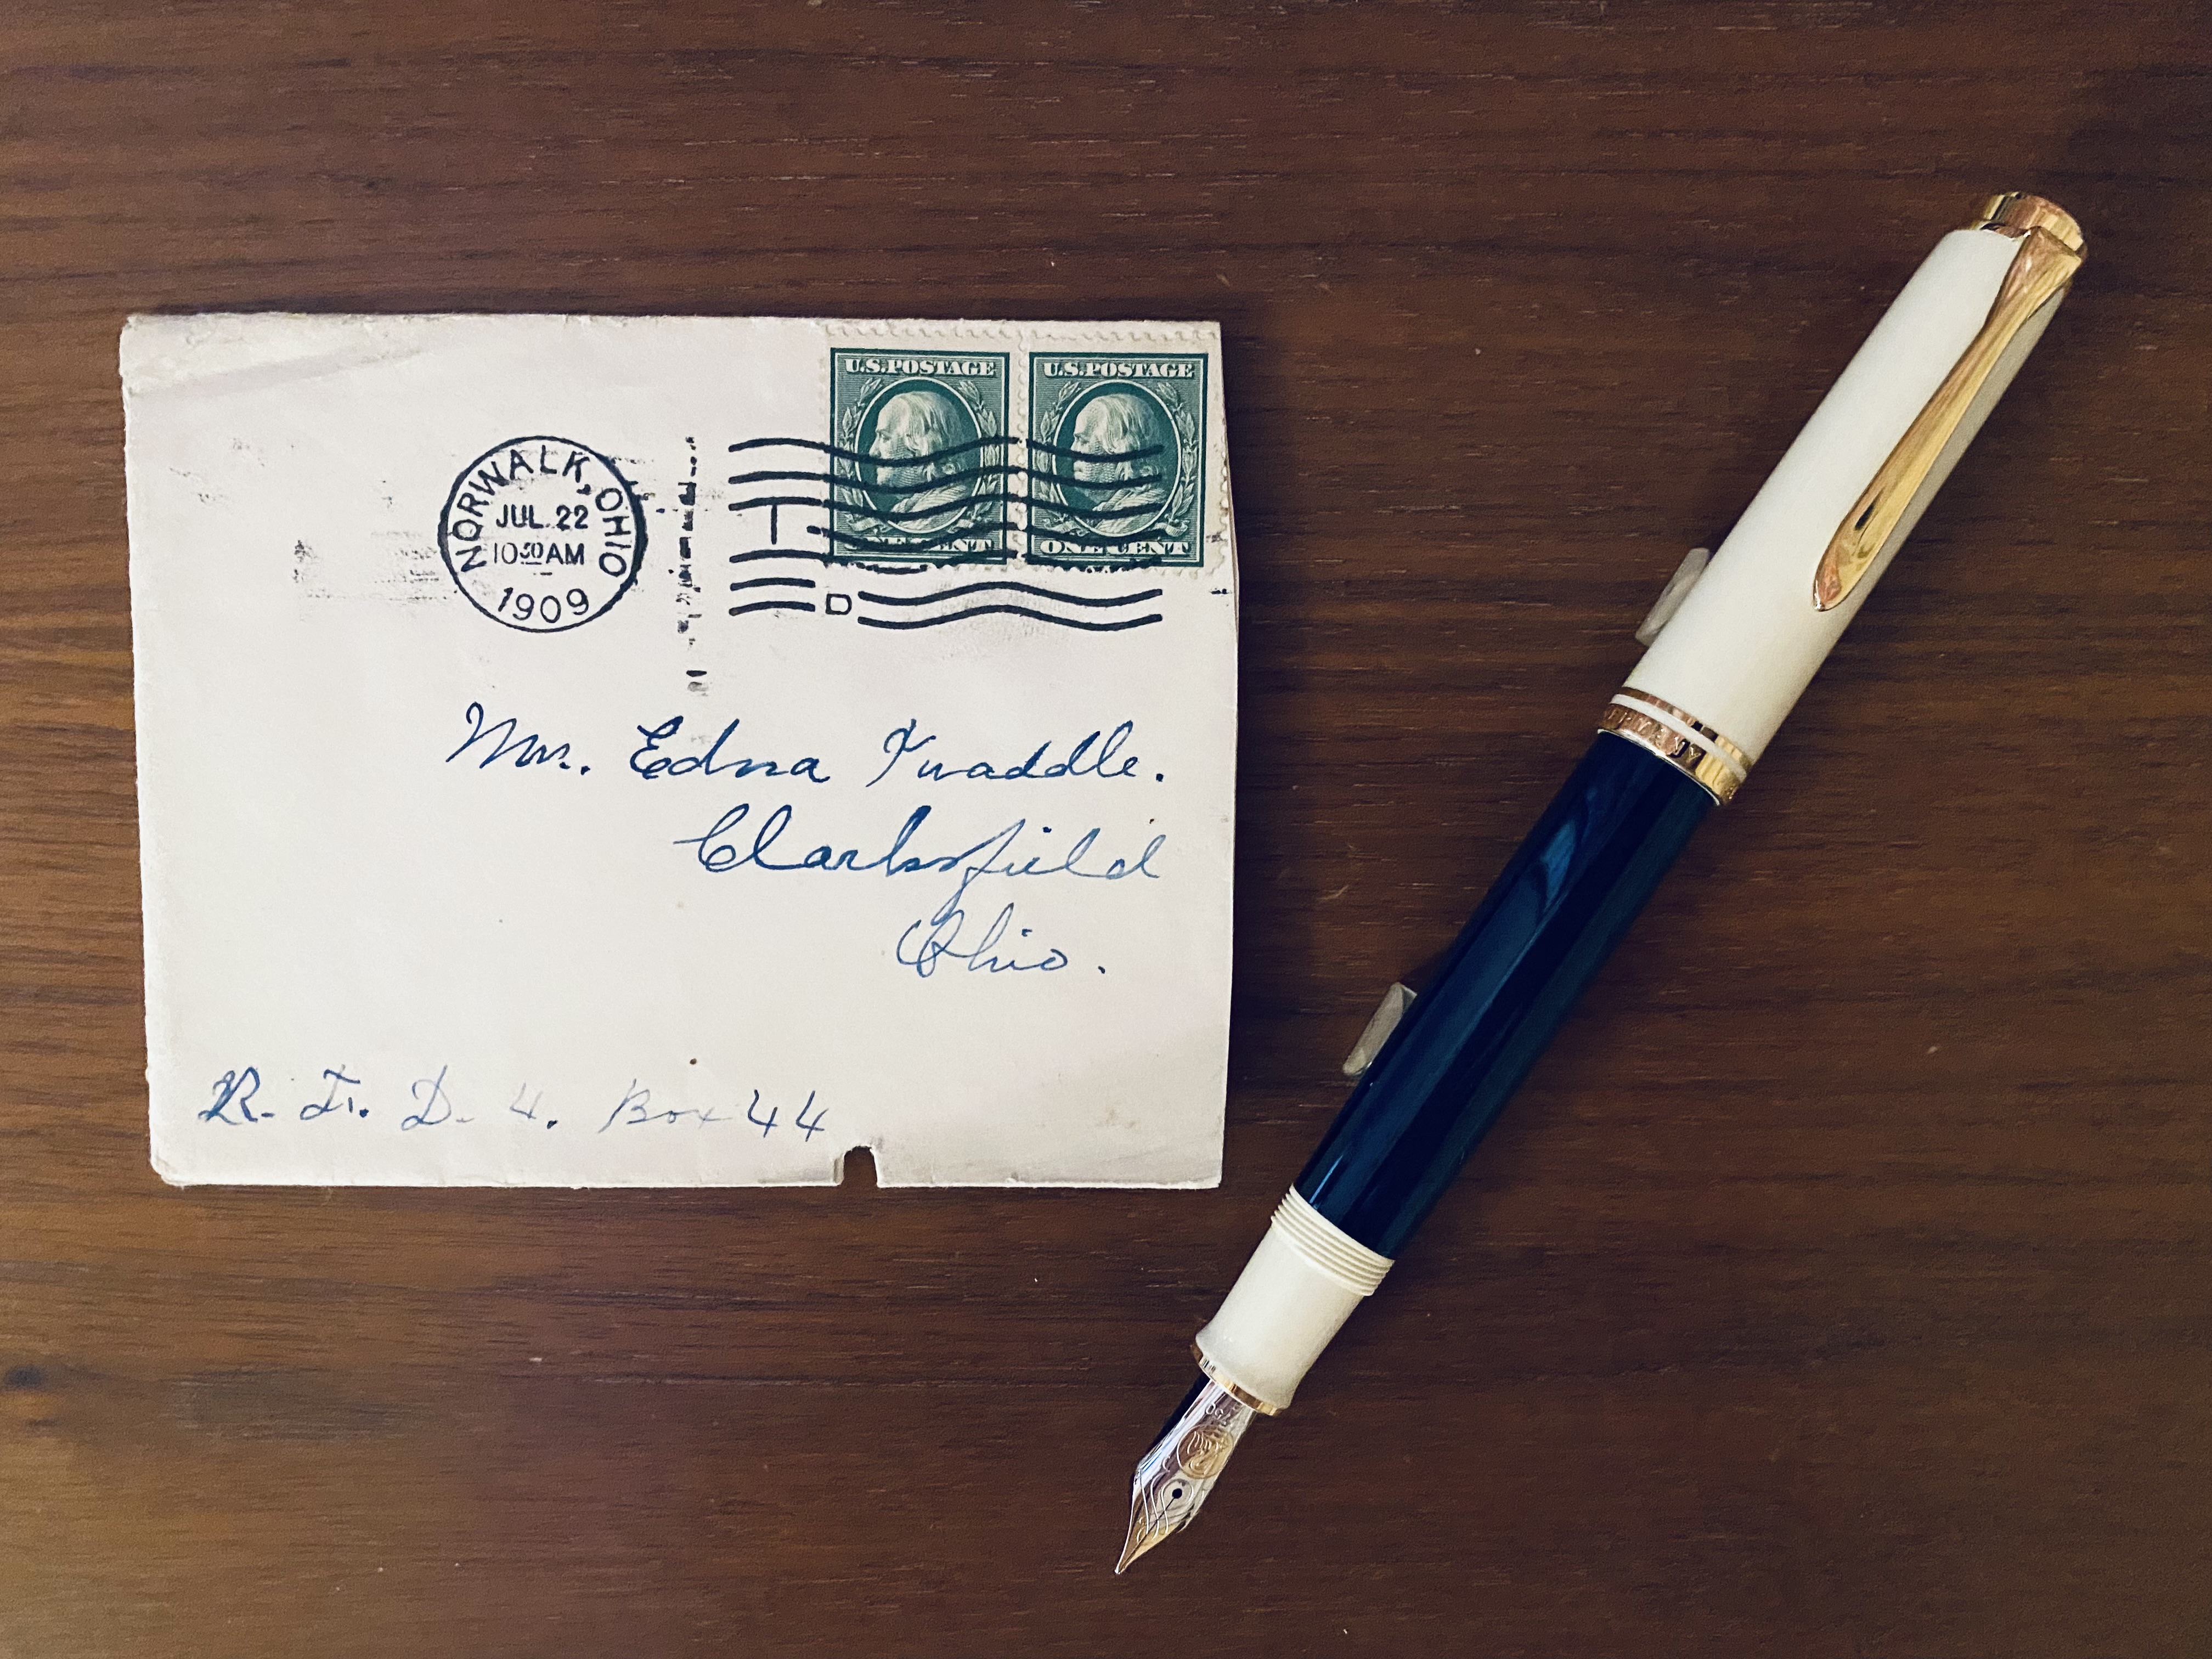 U.S. POSTAGE
U.S. POSTAGE
ONE CENT
ONE CENT
NORWALK, OHIO
JUL 22
10 30 AM
1909
Mrs. Edna Twaddle.
Clarksfield
Ohio.
R. F. D. 4. Box 44
750